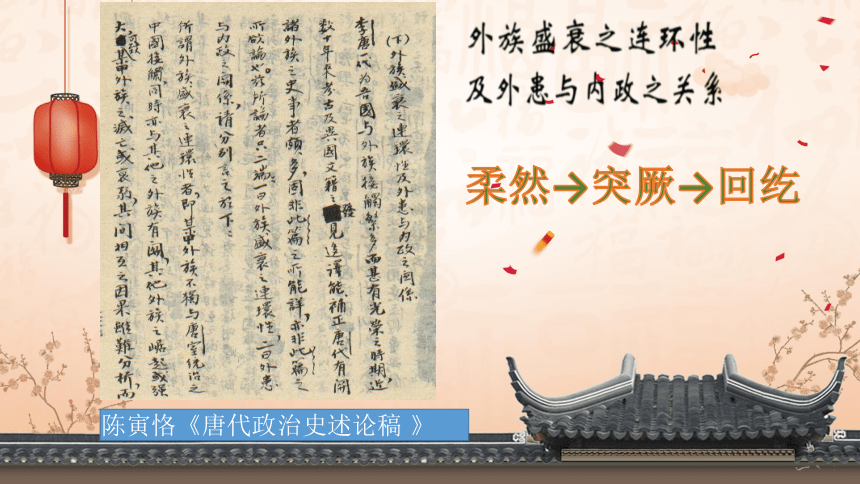 外族盛衰之连环性
及外患与内政之关系
柔然→突厥→回纥
(下)外族盛衰之連環性及外患与內政之関係
李唐一代为吾國与外族接觸繁多而甚有光榮之時期,近
數十年來考古及異國文籍之發見迻譯能補正唐代有関
諸外族之史事者頗多,固非此篇之所能詳,亦非此篇之
所欲論也。茲所論者只二端:一曰外族盛衰之連環性,二曰外患
与內政之関係,請分别言之於下:
所謂外族盛衰之連環性者,即某甲外族不獨与唐室統治之
中國接觸同時亦与其他之外族有関,其他外族之崛起或强
大可致某甲外族之滅亡或衰弱,其間相互之因果雖難分析,而
陈寅恪《唐代政治史述论稿 》